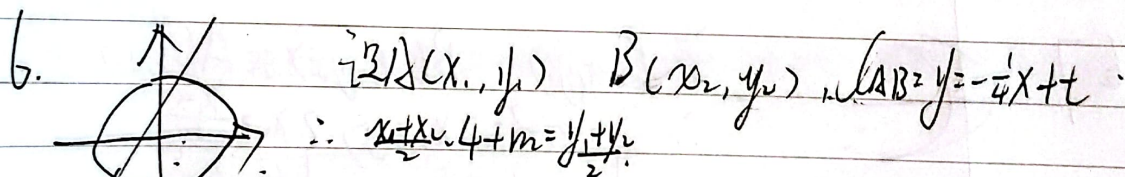 6. 设A(x₁,y₁) B(x₂,y₂), l_{AB}: y=-\frac{1}{4}x+t
∴ \frac{x₁+x₂}{2}·4+m=\frac{y₁+y₂}{2}.